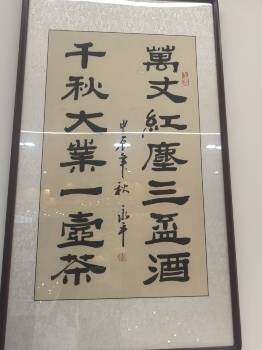 萬丈紅塵三盃酒
千秋大業一壺茶
甲辰年秋 永平